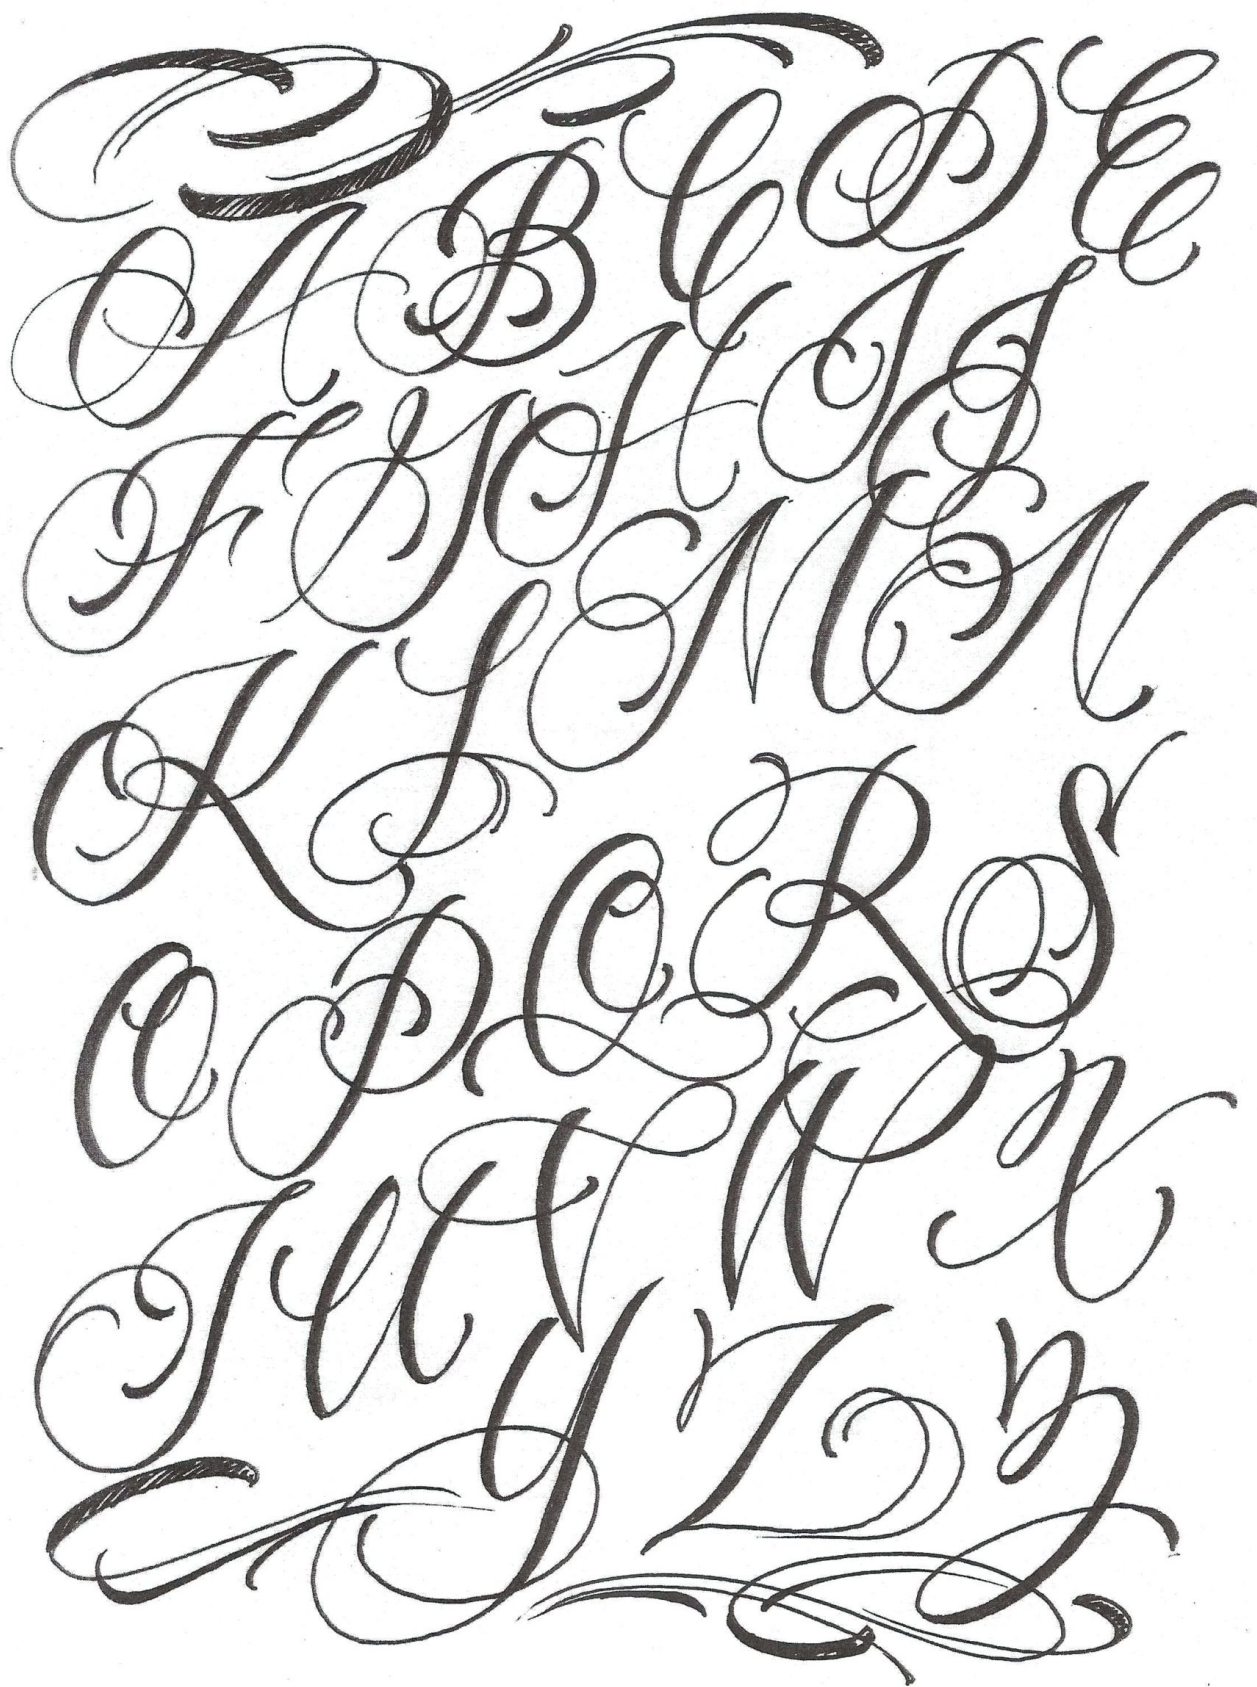 A B C D E
F G H I J
K L M N
O P Q R S
T U V W X
Y Z Z